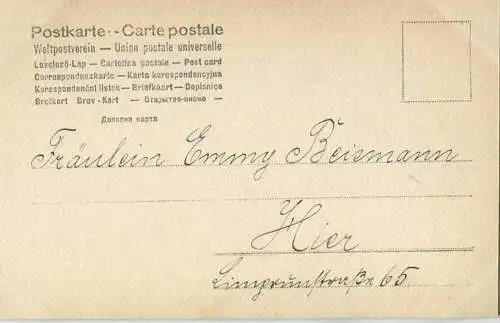 Postkarte -- Carte postale
Weltpostverein — Union postale universelle
Levelező-Lap — Cartolina postale — Post card
Correspondenzkarte — Karta korespondencyjna
Korespondenční lístek — Briefkaart — Dopisnice
Brefkort Brev-Kort — Открытое письмо —
Дописна карта
Fräulein Emmy Beismann
Hier
65.